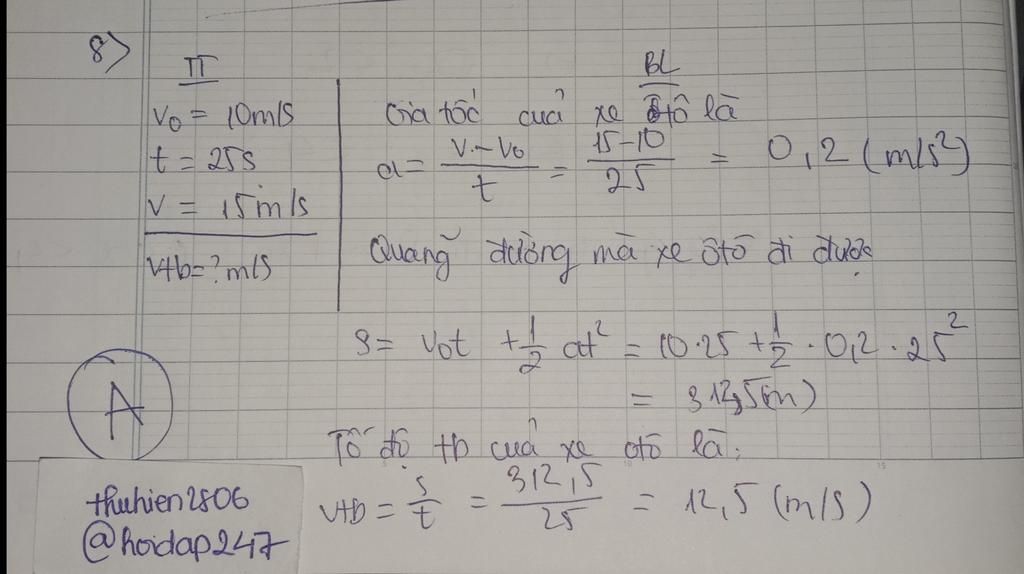 8>
TT
v₀ = 10m/s
t = 25s
v = 15m/s
vtb = ? m/s
BL
Gia tốc cuả xe ôtô là
a = (v - v₀)/t = (15-10)/25 = 0,2 (m/s²)
Quãng đường mà xe ôtô đi được
S = v₀t + 1/2 at² = 10·25 + 1/2 · 0,2 · 25²
= 312,5(m)
Tố độ tb cuả xe ôtô là:
vtb = s/t = 312,5/25 = 12,5 (m/s)
A
thuhien2806
@hoidap247